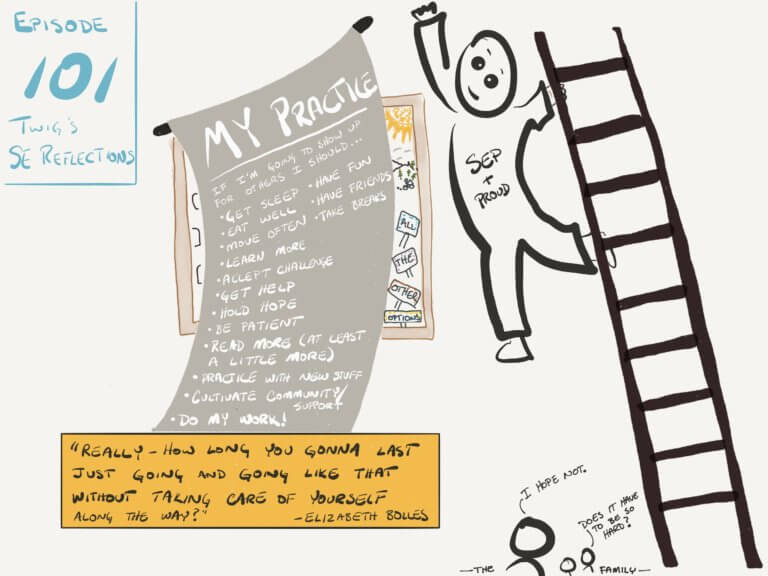 EPISODE
101
TWIG'S
SE REFLECTIONS
MY PRACTICE
IF I'M GOING TO SHOW UP
FOR OTHERS I SHOULD...
• GET SLEEP
• EAT WELL
• MOVE OFTEN
• LEARN MORE
• ACCEPT CHALLENGE
• GET HELP
• HOLD HOPE
• BE PATIENT
• READ MORE (AT LEAST
A LITTLE MORE)
• PRACTICE WITH NEW STUFF
• CULTIVATE COMMUNITY/
SUPPORT
• DO MY WORK!
• HAVE FUN
• HAVE FRIENDS
• TAKE BREAKS
ALL
THE
OTHER
OPTIONS
SEP
+
PROUD
"REALLY - HOW LONG YOU GONNA LAST
JUST GOING AND GOING LIKE THAT
WITHOUT TAKING CARE OF YOURSELF
ALONG THE WAY?" - ELIZABETH BOLLES
I HOPE NOT.
DOES IT HAVE
TO BE SO
HARD?
- THE FAMILY -